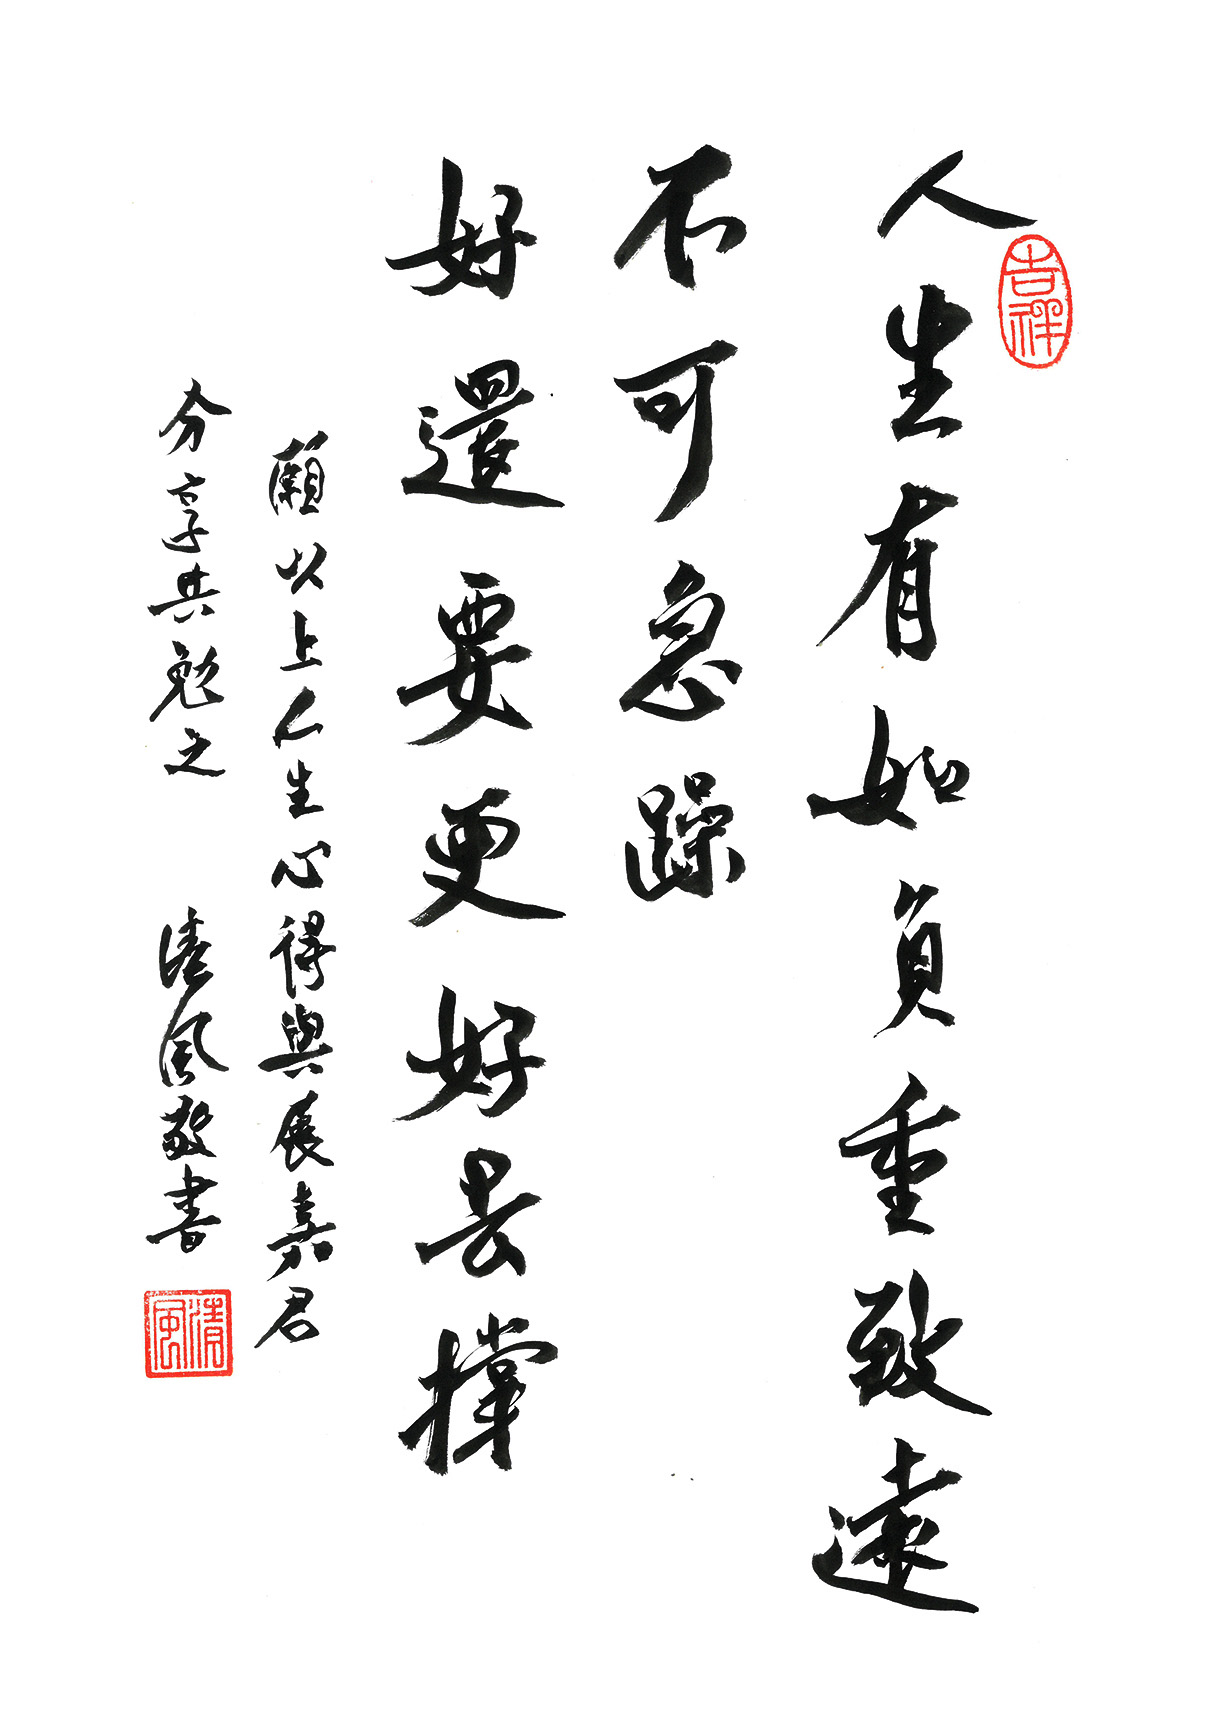 人生有如負重致遠
不可急躁
好還要更好去撑
願以上人生心得與展嘉君
分享共勉之 清風敬書
吉祥
清風